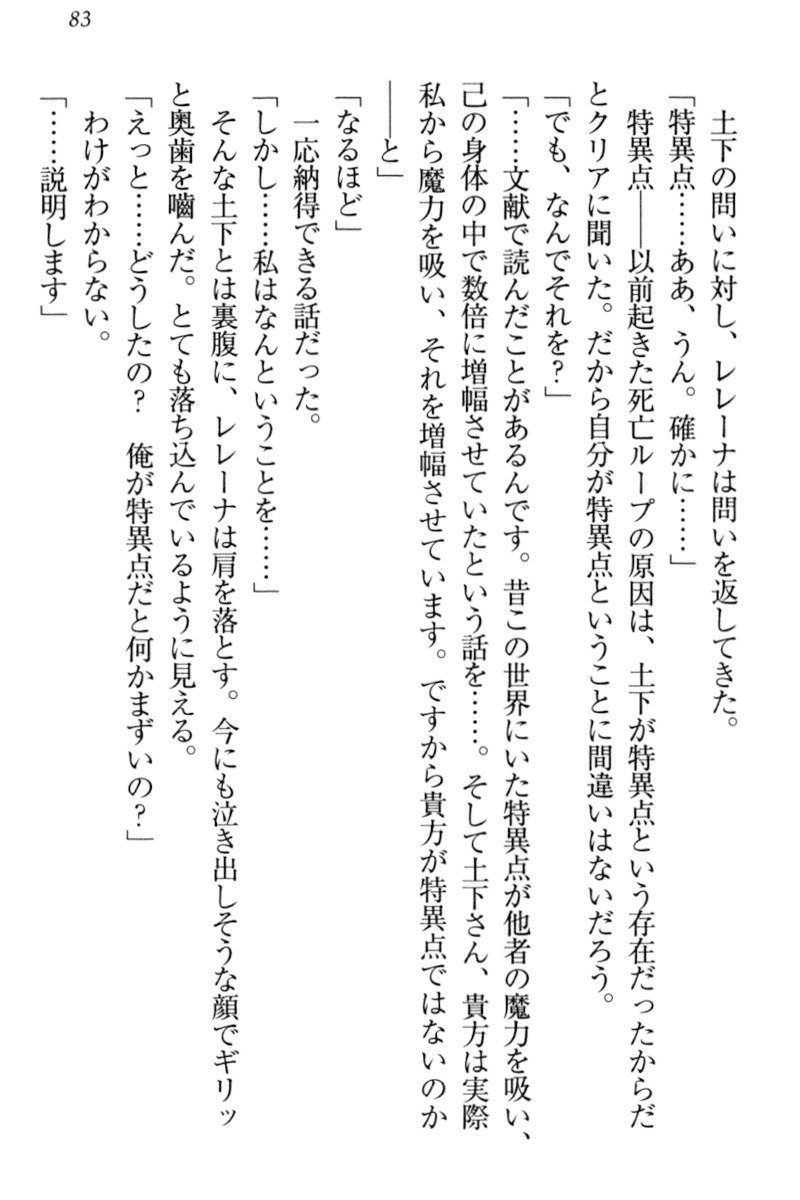 83
土下の問いに対し、レレーナは問いを返してきた。
「特異点……ああ、うん。確かに……」
特異点――以前起きた死亡ループの原因は、土下が特異点という存在だったからだ
とクリアに聞いた。だから自分が特異点ということに間違いはないだろう。
「でも、なんでそれを？」
「……文献で読んだことがあるんです。昔この世界にいた特異点が他者の魔力を吸い、
己の身体の中で数倍に増幅させていたという話を……。そして土下さん、貴方は実際
私から魔力を吸い、それを増幅させています。ですから貴方が特異点ではないのか
――と」
「なるほど」
一応納得できる話だった。
「しかし……私はなんということを……」
そんな土下とは裏腹に、レレーナは肩を落とす。今にも泣き出しそうな顔でギリッ
と奥歯を嚙んだ。とても落ち込んでいるように見える。
「えっと……どうしたの？　俺が特異点だと何かまずいの？」
わけがわからない。
「……説明します」